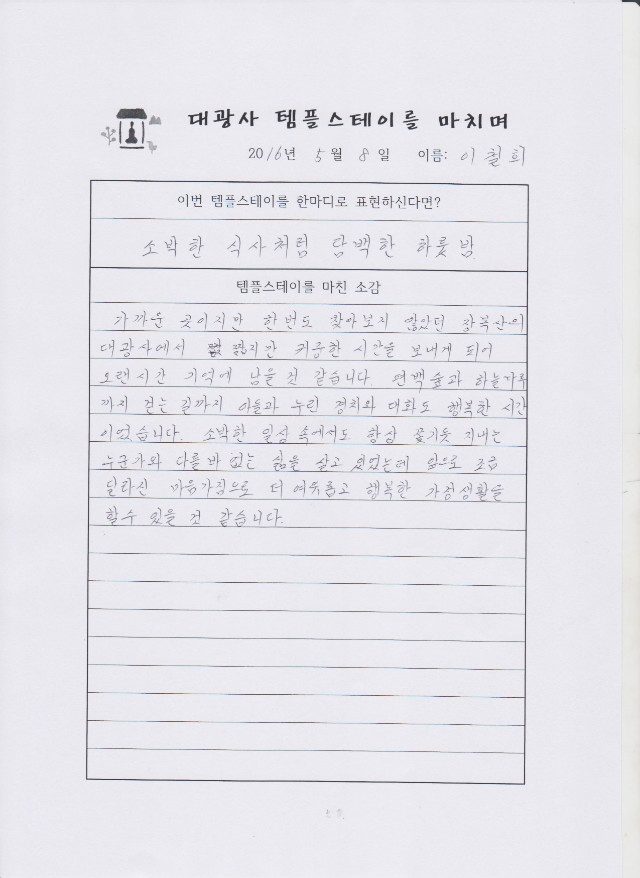 대광사 템플스테이를 마치며
2016년 5월 8일 이름: 이철희
이번 템플스테이를 한마디로 표현하신다면?
소박한 식사처럼 담백한 하룻밤.
템플스테이를 마친 소감
가까운 곳이지만 한번도 찾아보지 않았던 장복산의
대광사에서 짧지만 귀중한 시간을 보내게 되어
오랜시간 기억에 남을 것 같습니다. 편백숲과 하늘마루
까지 걷는 길까지 아들과 누린 경치와 대화도 행복한 시간
이었습니다. 소박한 일상 속에서도 항상 쫓기듯 지내는
누군가와 다를 바 없는 삶을 살고 있었는데 앞으로 조금
달라진 마음가짐으로 더 여유롭고 행복한 가정생활을
할수 있을 것 같습니다.